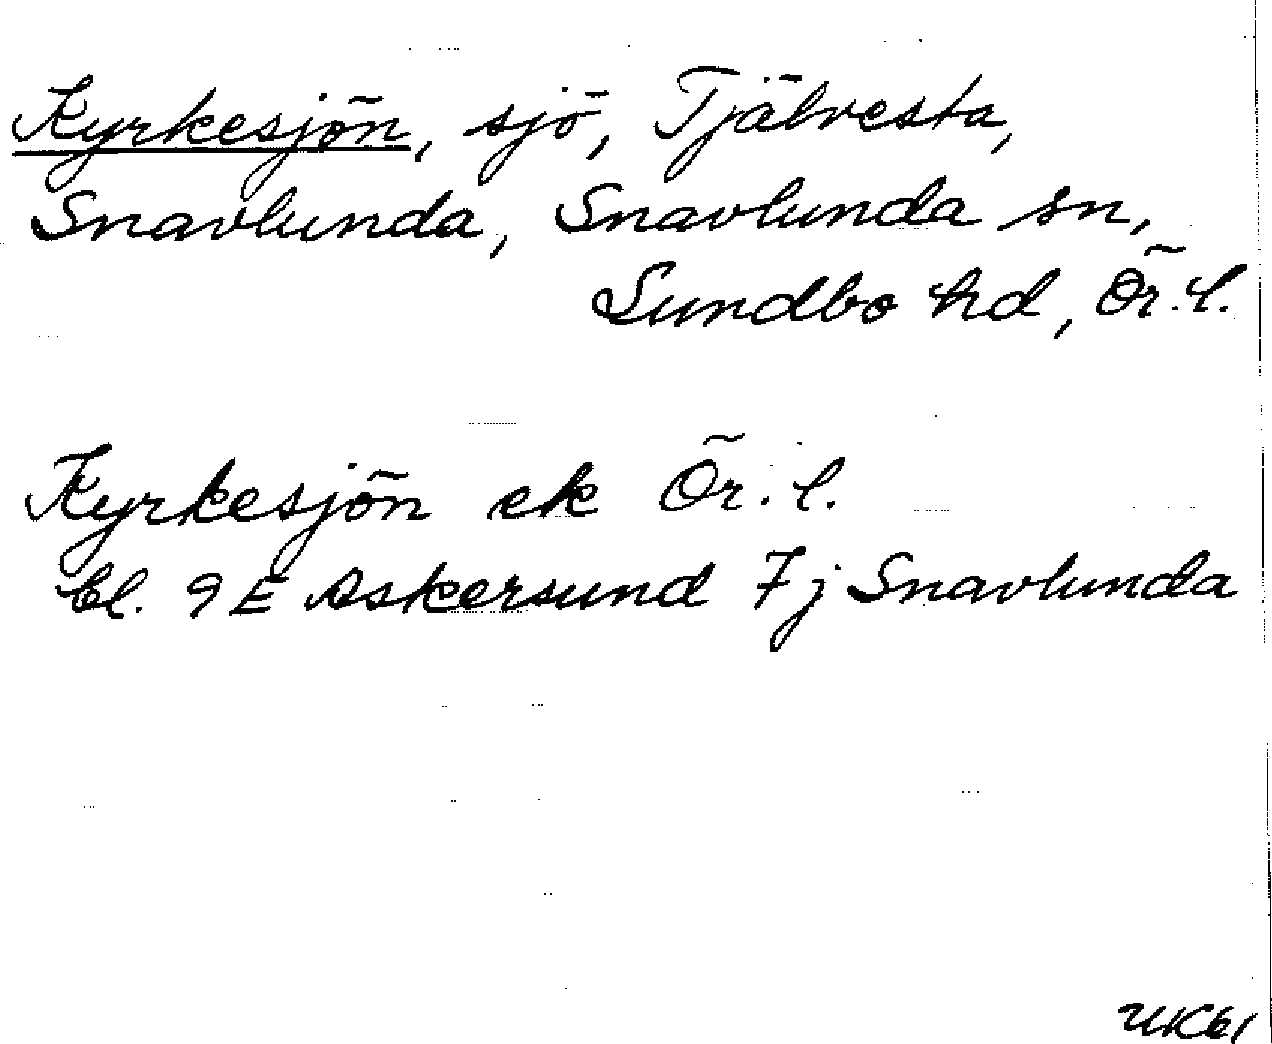 Kyrkesjön, sjö, Tjälvesta,
Snavlunda, Snavlunda sn,
Sundbo hd, Ör.l.
Kyrkesjön ek Ör.l.
bl. 9E Askersund 7j Snavlunda